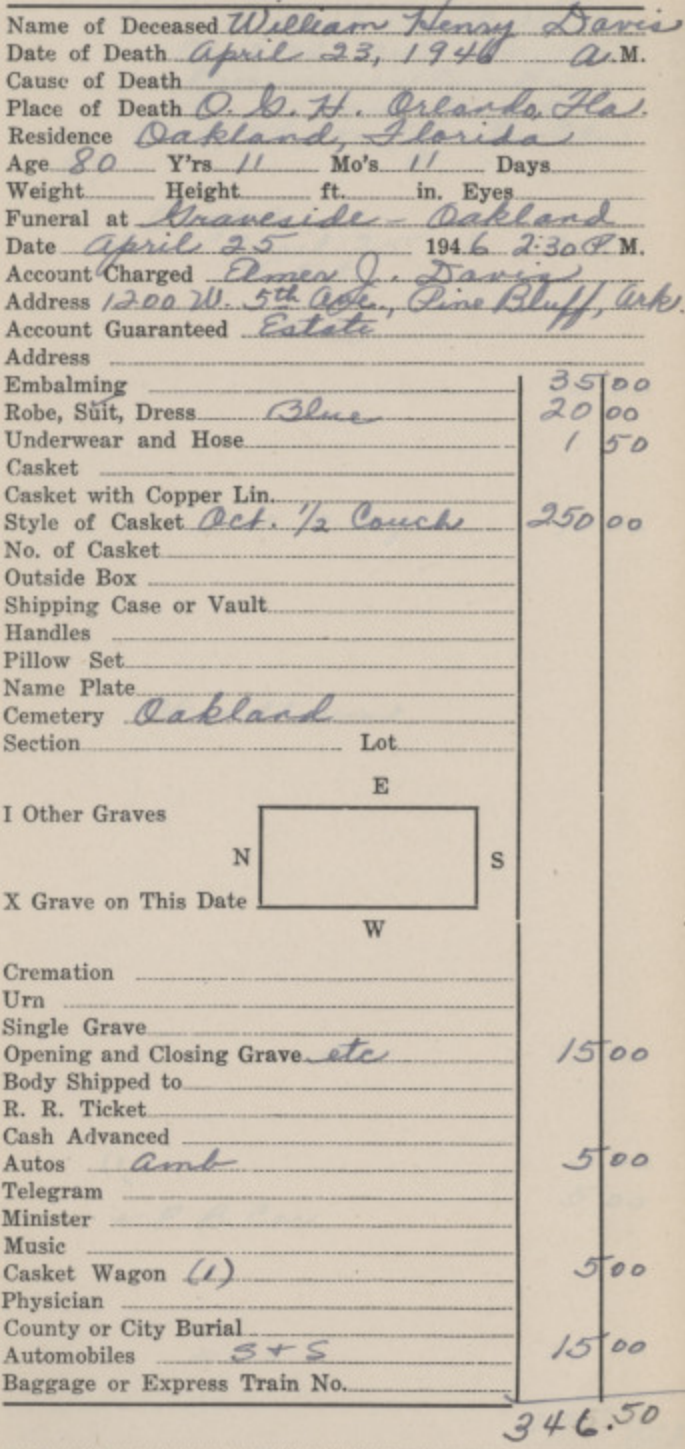 Name of Deceased William Henry Davis
Date of Death April 23, 1946 A.M.
Cause of Death
Place of Death O. G. H. Orlando, Fla.
Residence Oakland, Florida
Age 80 Y'rs 11 Mo's 11 Days
Weight Height ft. in. Eyes
Funeral at Graveside - Oakland
Date April 25 1946 2:30 P.M.
Account Charged Elmer J. Davis
Address 1200 W. 5th Ave., Pine Bluff, Ark.
Account Guaranteed Estate
Address
Embalming 35 00
Robe, Suit, Dress Blue 20 00
Underwear and Hose 1 50
Casket
Casket with Copper Lin.
Style of Casket Oct. 1/2 Couch 250 00
No. of Casket
Outside Box
Shipping Case or Vault
Handles
Pillow Set
Name Plate
Cemetery Oakland
Section Lot
E
I Other Graves
N S
X Grave on This Date
W
Cremation
Urn
Single Grave
Opening and Closing Grave etc 15 00
Body Shipped to
R. R. Ticket
Cash Advanced
Autos amb 5 00
Telegram
Minister
Music
Casket Wagon (1) 5 00
Physician
County or City Burial
Automobiles S + S 15 00
Baggage or Express Train No.
346.50